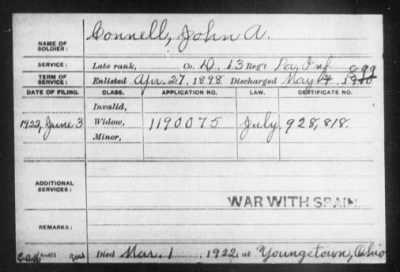 NAME OF SOLDIER: Connell, John A.
SERVICE: Late rank, Co. D, 13 Reg't Pa. Inf
TERM OF SERVICE: Enlisted Apr. 27, 1898 Discharged May 899
DATE OF FILING. CLASS. APPLICATION NO. LAW. CERTIFICATE NO.
Invalid,
1922, June 3 Widow, 1190075 July 928,818.
Minor,
ADDITIONAL SERVICES:
WAR WITH SPAIN.
REMARKS:
Died Mar. 1, 1922, at Youngstown, Ohio